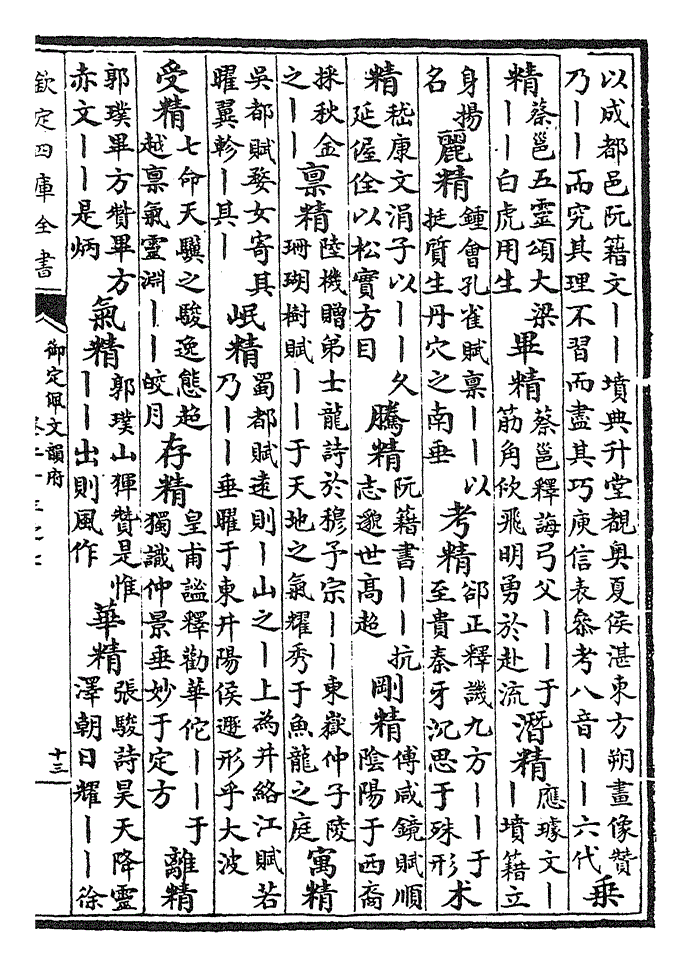 以成都邑阮籍文——墳典升堂覩奥夏侯湛東方朔畫像賛
乃——而究其理不習而盡其巧庾信表叅考八音——六代 乗
精 蔡邕五靈頌大梁——白虎用生 畢精 蔡邕釋誨弓父——于筋角佽飛明勇於赴流 潛精 應璩文——墳籍立
身揚名 麗精 鍾會孔雀賦禀——以挺質生丹穴之南垂 考精 郤正釋譏九方——于至貴秦牙沉思于殊形 术
精 嵇康文涓子以——久延偓佺以松實方目 騰精 阮籍書——抗志邈世髙超 剛精 傅咸鏡賦順陰陽于西裔
採秋金之—— 禀精 陸機贈弟士龍詩於穆予宗——東嶽仲子陵珊瑚樹賦——于天地之氣耀秀于魚龍之庭 寓精
吳都賦婺女寄其曜翼軫—其— 岷精 蜀都賦逺則—山之—上為井絡江賦若乃——垂曜于東井陽侯遯形乎大波
受精 七命天驥之駿逸態超越禀氣靈淵——皎月 存精 皇甫謐釋勸華佗——于獨識仲景垂妙于定方 離精
郭璞畢方賛畢方赤文——是炳 氣精 郭璞山㺑賛是惟——出則風作 華精 張駿詩昊天降靈澤朝日耀——徐
欽定四庫全書
御定佩文韻府
十三